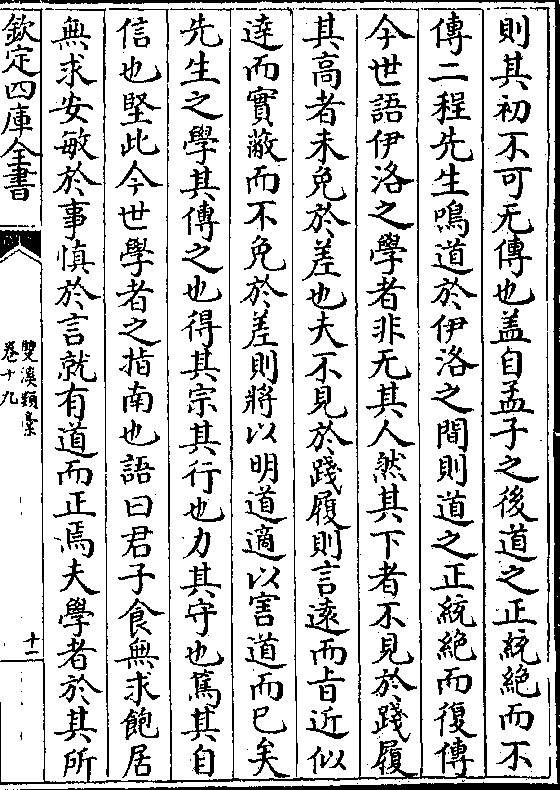 則其初不可无傳也盖自孟子之後道之正統絶而不
傳二程先生鳴道於伊洛之間則道之正統絶而復傳
今世語伊洛之學者非无其人然其下者不見於踐履
其高者未免於差也夫不見於踐履則言遠而㫖近似
逹而實蔽而不免於差則將以明道適以害道而已矣
先生之學其傳之也得其宗其行也力其守也篤其自
信也堅此今世學者之指南也語曰君子食無求飽居
無求安敏於事慎於言就有道而正焉夫學者於其所
欽定四庫全書
雙溪類藁
卷十九
十二